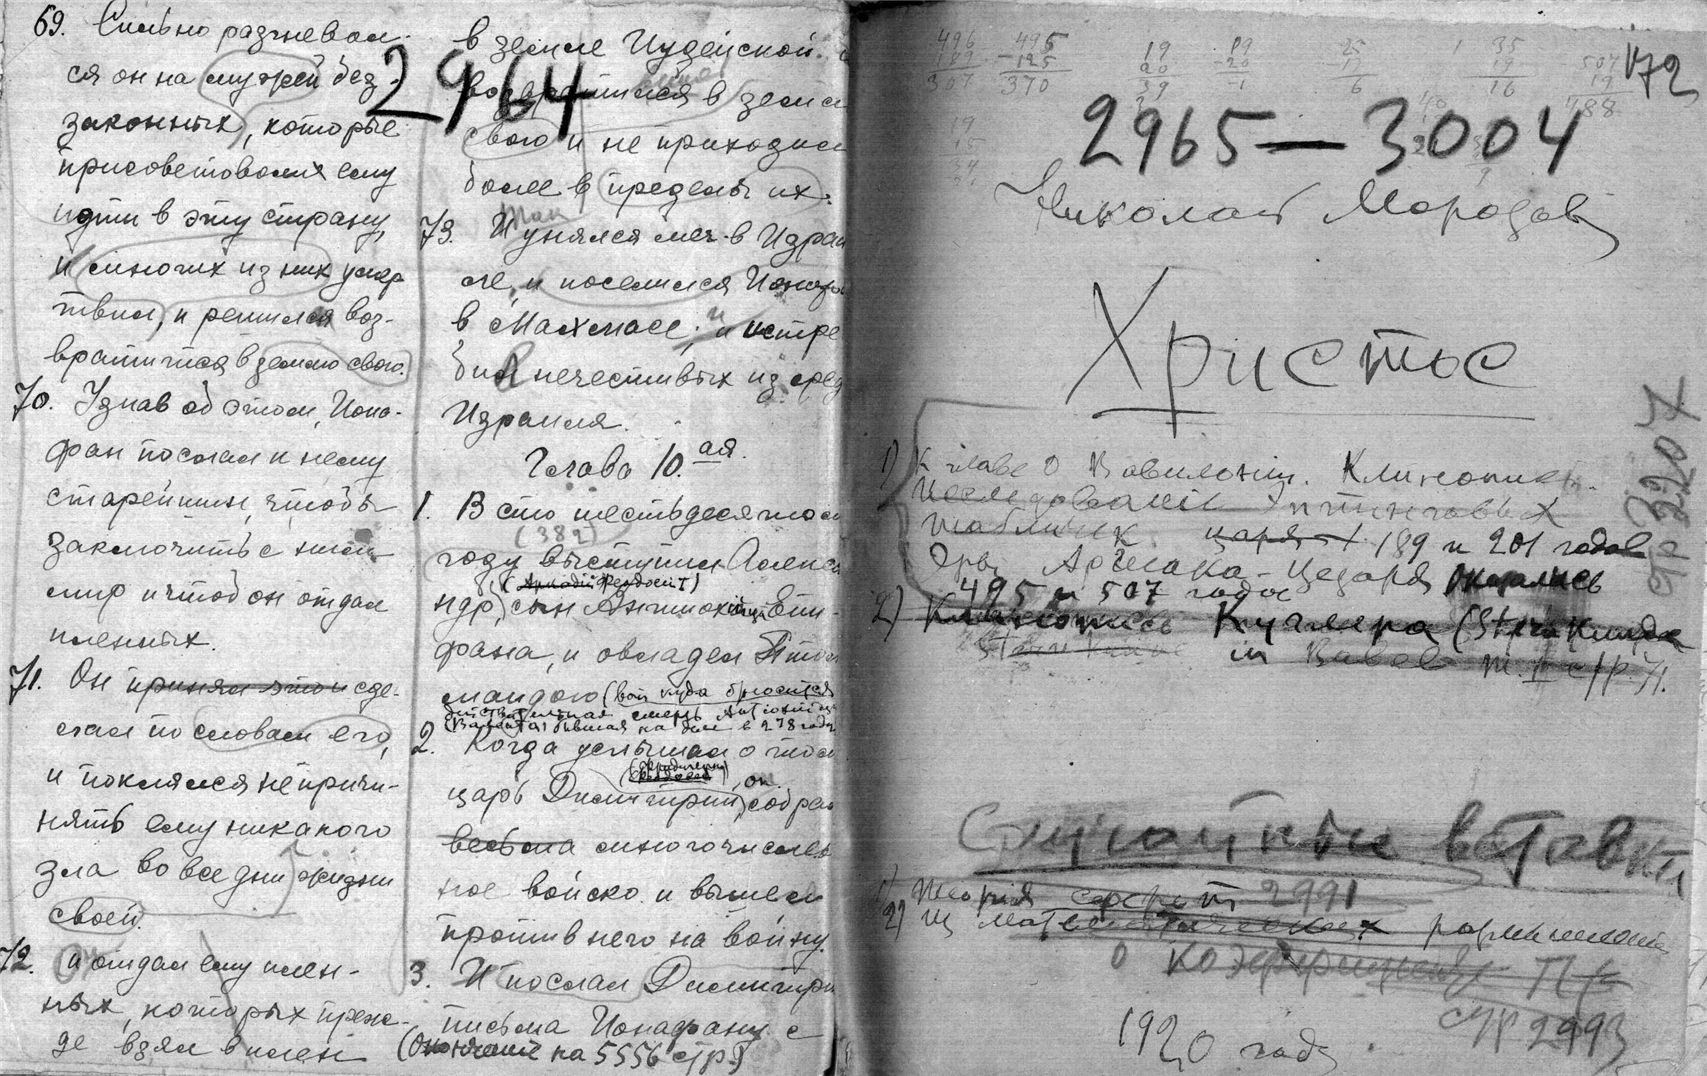 2964
69. Сильно разгневал-
ся он на мужей без-
законных, которые
присоветовали ему
идти в эту страну,
и многих из них умер
твил, и решился воз-
вратиться в землю свою.
70. Узнав об этом, Иона-
фан послал к нему
старейшин, чтобы
заключить с ним
мир и чтоб он отдал
пленных.
71. Он принял это и сде-
лал по словам его,
и поклялся не причи-
нять ему никакого
зла во все дни жизни
своей.
72. и отдал ему плен-
ных, которых преж-
де взял в плен
в земле Иудейской.
возвратился в земл
свою и не приходил
более в пределы их.
73. И унялся меч в Изра
ле, и поселился Иона
в Махмасе, и истре
бил нечестивых из сред
Израиля.
Глава 10.ая
1. В сто шестьдесятом
(382)
году выступил Алекса
(Аркадий Феодосит)
ндр, сын Антиоха Епи-
фана, и овладел Птол
маидою (вот куда бросится
действительная смерть
бывшая на деле в 278 году
2. Когда услышал о том
царь Димитрий, он собрал
весьма многочислен
ное войско и вышел
против него на войну.
3. И послал Димитри
письма Ионафану с
(Окончание на 5556 стр.)
172
496 495 19 19 25 35 507
189 -125 20 -20 19 19 19
307 370 39 -1 6 16 488
2965—3004
Николай Морозов
Христос
стр 3207
1) К главе о Вавилонии. Клинопись.
Исследования
табличек царя 189 и 201 годов
Эры Аршака-Цезаря оказались
495 и 507 года
2) Клинопись Куглера (Sternkunde
Sternkunde in Babel т. I стр. 71.
Случайные вставки
1) Теория 2991
2) Из математических размышлений
о коэффициенте
стр 2993
1920 год